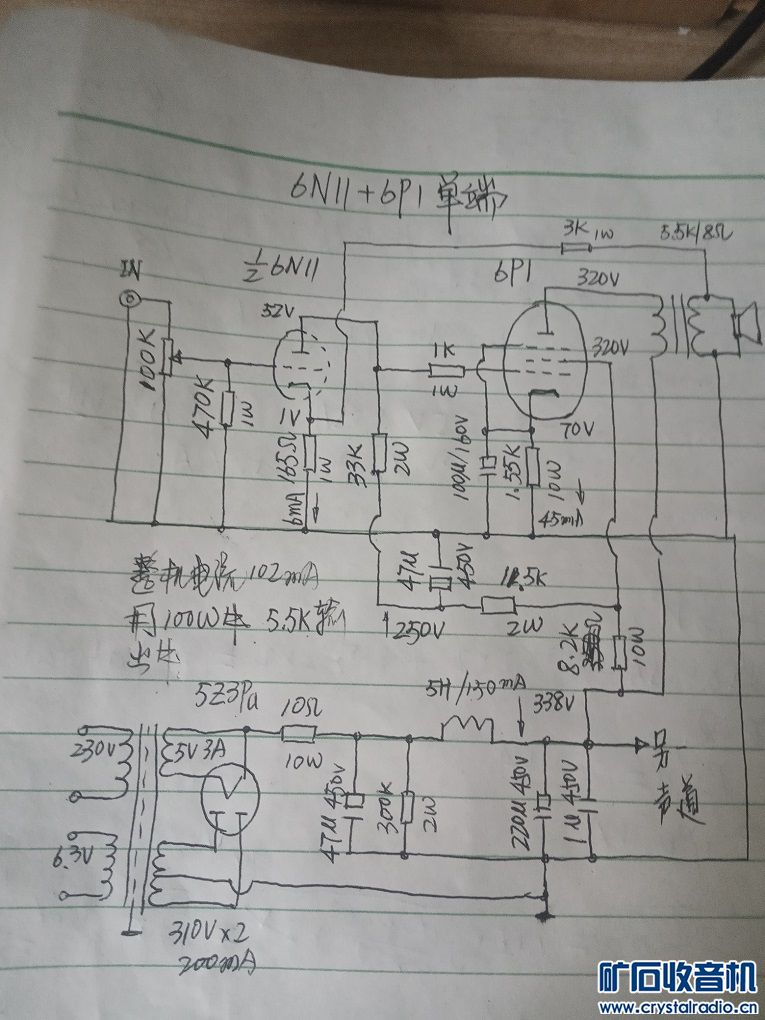 6N11+6P1单端
3K 1W
5.5K/8Ω
IN
½6N11
6P1
320V
52V
320V
100K
1K
1W
470K
1W
1V
70V
165Ω
1W
33K
2W
100μ/160V
1.55K
10W
6mA
45mA
47μ
450V
整机电流102mA
用100W牛 5.5K输
出牛
250V
2W
8.2K
10W
5Z3Pa
10Ω
10W
5H/150mA
338V
230V
5V3A
47μ 450V
300K
2W
220μ 450V
1μ 450V
另一
声道
6.3V
310V×2
200mA
矿石收音机
www.crystalradio.cn